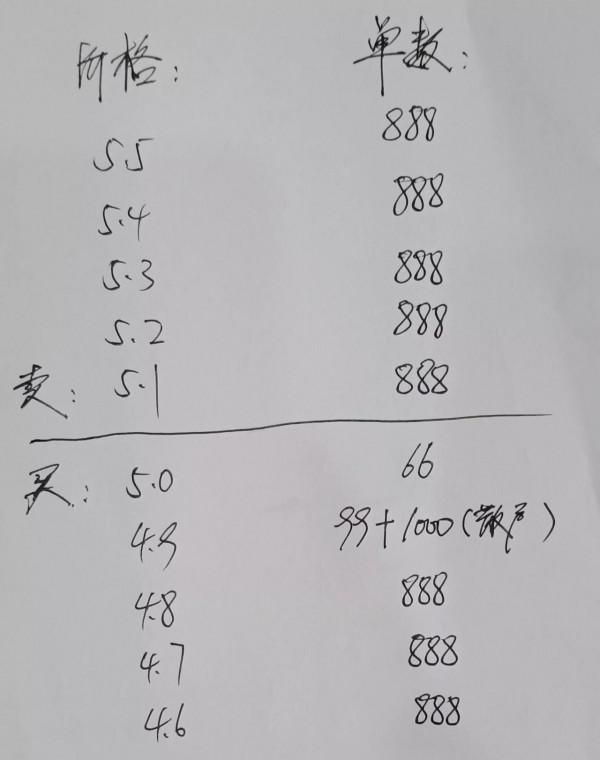 价格： 单数：
5.5 888
5.4 888
5.3 888
5.2 888
卖： 5.1 888
买： 5.0 66
4.9 99+1000(散户)
4.8 888
4.7 888
4.6 888